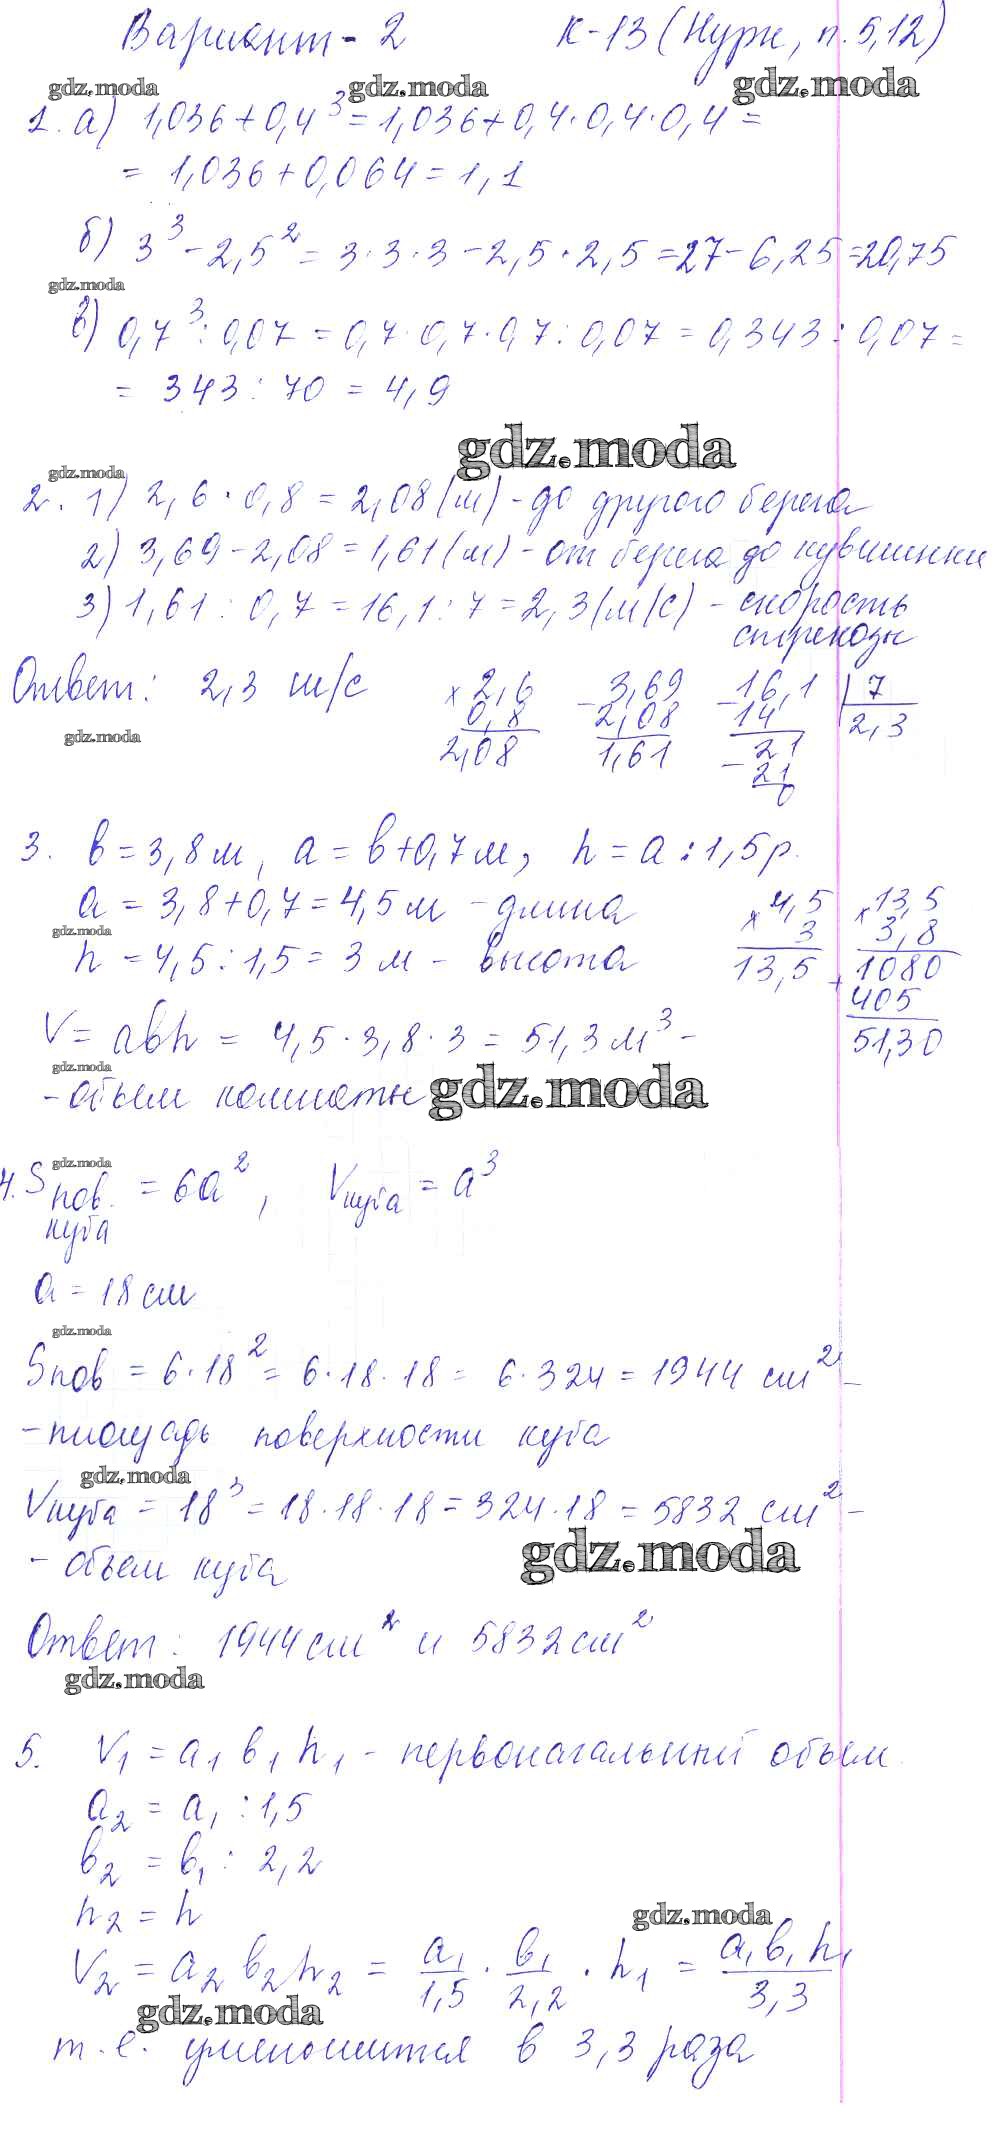 Вариант-2 К-13 (Нурк, п. 5,12)
gdz.moda gdz.moda gdz.moda
1. а) 1,036+0,4³=1,036+0,4·0,4·0,4=
= 1,036+0,064=1,1
б) 3³-2,5²=3·3·3-2,5·2,5=27-6,25=20,75
gdz.moda
в) 0,7³:0,07=0,7·0,7·0,7:0,07=0,343:0,07=
= 343:70=4,9
gdz.moda
gdz.moda
2. 1) 2,6·0,8=2,08(м)-до другого берега
2) 3,69-2,08=1,61(м)-от берега до кувшинки
3) 1,61:0,7=16,1:7=2,3(м/с)-скорость
стрекозы
Ответ: 2,3 м/с
×2,6 -3,69 -16,1 | 7
0,8 2,08 14 2,3
2,08 1,61 -21
21
0
gdz.moda
3. в=3,8м, а=в+0,7м, h=а:1,5р.
а=3,8+0,7=4,5м-длина ×4,5 ×13,5
gdz.moda 3 3,8
h=4,5:1,5=3м-высота 13,5 +1080
405
V=авh=4,5·3,8·3=51,3м³- 51,30
gdz.moda
-объем комнаты gdz.moda
gdz.moda
4. Sпов. куба=6а², Vкуба=а³
а=18см
gdz.moda
Sпов=6·18²=6·18·18=6·324=1944 см²-
-площадь поверхности куба
gdz.moda
Vкуба=18³=18·18·18=324·18=5832 см²-
-объем куба gdz.moda
Ответ: 1944см² и 5832см²
gdz.moda
5. V₁=а₁в₁h₁-первоначальный объем.
а₂=а₁:1,5
в₂=в₁:2,2
h₂=h
gdz.moda
V₂=а₂в₂h₂=а₁/1,5·в₁/2,2·h₁=а₁в₁h₁/3,3
gdz.moda
т.е. уменьшится в 3,3 раза